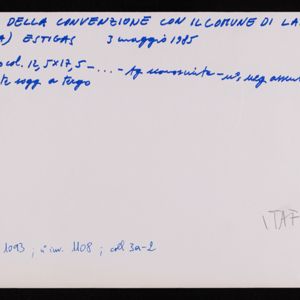 DELLA CONVENZIONE CON IL COMUNE DI LA
A) ESTIGAS 3 maggio 1985
col. 12,5x17,5 - ... - ag. sconosciuta - n°, neg. assun
sogg. a tergo
ITAF
1093 ; n° inv. 1108 ; coll 3a-2